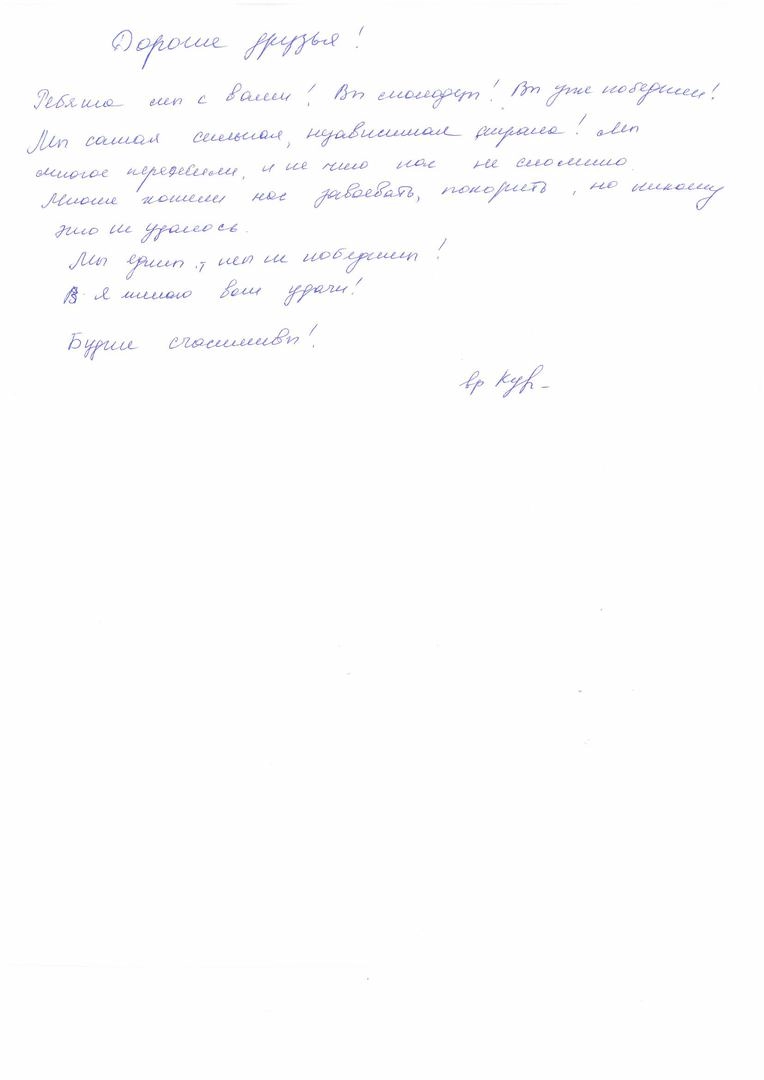 Дорогие друзья!
Ребята мы с вами! Вы молодцы! Вы уже победили!
Мы самая сильная, независимая страна! Мы
многое пережили, и не что нас не сломило.
Многие хотели нас завоевать, покорить, но никому
это не удалось.
Мы едины, мы не победимы!
Я желаю вам удачи!
Будте счастливы!
вр Кур